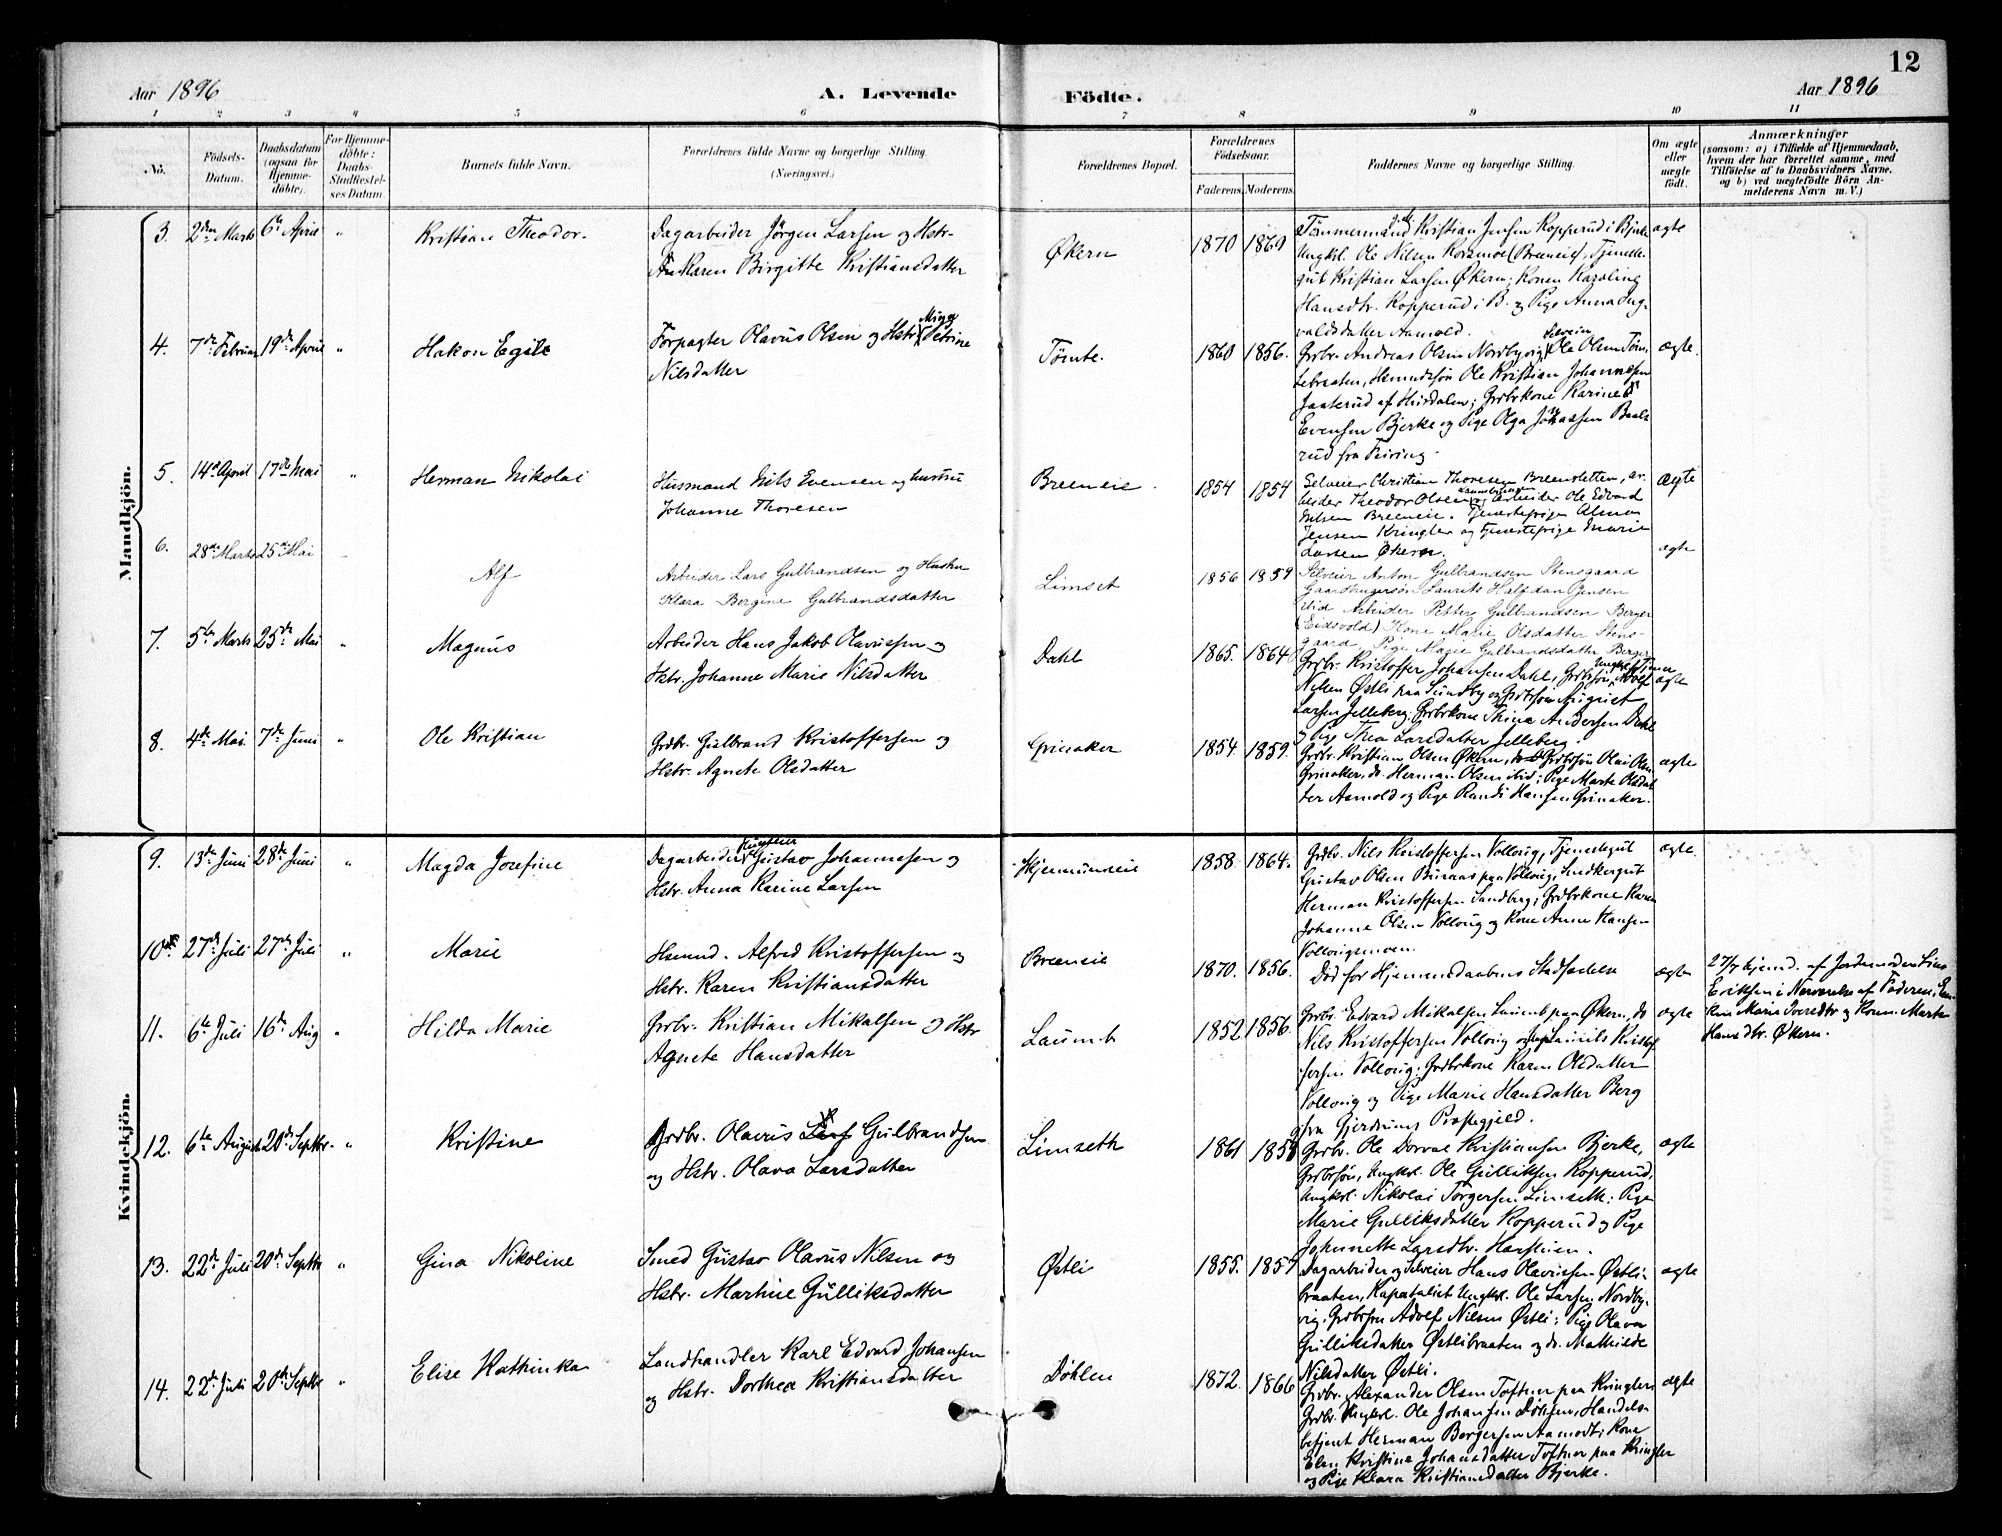 12
Aar 1896
A. Levende
Födte.
Aar 1896
1 2 3 4 5 6 7 8 9 10 11
No.
Födsels-
Datum.
Daabsdatum
(ogsaa for
Hjemme-
döbte).
For Hjemme-
döbte:
Daabs-
Stadfæstel-
ses Datum.
Barnets fulde Navn.
Forældrenes fulde Navne og borgerlige Stilling.
(Næringsvei.)
Forældrenes Bopæl.
Forældrenes
Födselsaar.
Faderens. Moderens.
Faddernes Navne og borgerlige Stilling.
Om ægte
eller
uægte
födt.
Anmærkninger
(saasom: a) i Tilfælde af Hjemmedaab,
hvem der har forrettet samme, med
Tilföielse af to Daabsvidners Navne,
og b) ved uægtefödte Börn An-
melderens Navn m. V.)
Mandkjön.
3. 2den Marts 6te April " Kristian Theodor.
Dagarbeider Jörgen Larsen og Hstr.
Karen Birgitte Kristiansdatter
Økern 1870 1869
Tömmermand Kristian Jensen Kopperud i Bjerke
Ungkl. Ole Nilsen Korsmoe (Breeneie), Tjeneste-
gut Kristian Larsen Økern; Konen Karoline
Hansdtr. Kopperud i B. og Pige Anna Ing-
valdsdatter Aamold.
ægte
4. 7de Februar 19de April " Hakon Egill
Forpagter Olavus Olsen og Hstr. Petrine
Nilsdatter
Tømte. 1860 1856.
Grdbr. Andreas Olsen Nordbyvig, Selveier Ole Olsen Töm-
tebraaten, Ole Kristian Johannessen
Jaaterud af Hurdalen; Grdbrkone Karine
Evensen Bjerke og Pige Olga Johansen Baals-
rud fra Feiring.
ægte.
5. 14de April 17de Mai " Herman Nikolai
Husmand Nils Evensen og hustru
Johanne Thoresen
Breeneie. 1854 1854
Selveier Christian Thoresen Breensletten, ar-
beider Theodor Olsen og arbeider Ole Edvard
Nilsen Breeneie. Tjenestepige Alma
Jensen Kringler og tjenestepige Marie
Larsen Økern.
ægte
6. 28de Marts 25de Mai Alf
Arbeider Lars Gulbrandsen og Hustru
Klara Bergine Gulbrandsdatter
Limset 1856 1859
Selveier Anton Gulbrandsen Stensgaard
Gaardbrugersøn Laurits Halfdan Jensen
ibid Arbeider Petter Gulbrandsen Berger
(Eidsvold) Kone Marie Olsdatter Stens-
gaard Pige Magie Gulbrandsdatter Berger
ægte
7. 5te Marts 25de Mai " Magnus
Arbeider Hans Jakob Olavussen og
Hstr. Johanne Marie Nilsdatter
Dahl 1865. 1864
Grdbr. Kristoffer Johansen Dahl, Grdbrsön Adolf
Nilsen Østli paa Sundby og Grdbrsön August
Larsen Jelleberg; Grdbrkone Thina Andersen Dahl
og Pige Thea Larsdatter Jelleberg.
ægte
8. 4de Mai. 7de Juni " Ole Kristian
Grdbr. Gulbrand Kristoffersen og
Hstr. Agnete Olsdatter
Grinaker 1854. 1859.
Grdbr. Kristian Olsen Økern, Grdbrsön Olai Olsen
Grinaker, do. Herman Olsen ibid; Pige Marte Olsdat-
ter Aamold og Pige Randi Hansen Grinaker.
ægte
Kvindekjön.
9. 13de Juni 28de Juni " Magda Josefine
Dagarbeider Gustav Johannesen og
Hstr. Anna Karine Larsen
Skjermunseie 1858. 1864.
Grdbr. Nils Kristoffersen Vollovig, Tjenestegut
Gustav Olsen Buraas paa Vollovig, Snedkergut
Herman Kristoffersen Sandberg; Grdbrkone Karen
Johanne Olsen Vollovig og Kone Anne Hansen
Vollovigsmoen.
ægte.
10. 27de Juli 27de Juli " Marie
Husmd. Alfred Kristoffersen og
Hstr. Karen Kristiansdatter
Breeneie 1870. 1856.
Död før Hjemmedaabens Stadfæstelse
ægte
27/7 hjemd. af Jordemoder Lina
Eriksen i Nærværelse af Faderen, En-
ken Marie Iversdtr. og Konen Marte
Hansdtr. Økern.
11. 6te Juli 16de Aug " Hilda Marie
Grdbr. Kristian Mikalsen og Hstr
Agnete Hansdatter
Laumb 1852. 1856.
Grdbr. Edvard Mikalsen Laumb paa Økern, do
Nils Kristoffersen Vollovig og Laurits Kristof-
fersen Vollovig; Grdbrkone Karen Olsdatter
Vollovig og Pige Marie Hansdatter Berg
fra Gjerdrums Præstegjeld.
ægte
12. 6te August 20de Septbr. " Kristine
Grdbr. Olavus Gulbrandsen
og Hstr. Olava Larsdatter
Limseth 1861
Grdbr. Ole Dorval Kristiansen Bjerke,
Grdbrsön, Ungkrl. Ole Gulliksen Kopperud,
Ungkrl. Nikolai Torgersen Limseth; Pige
Marie Gulliksdatter Kopperud og Pige
Johannette Larsdtr. Harstuen.
ægte
13. 22de Juli 20de Septbr " Gina Nikoline
Smed Gustav Olavus Nilsen og
Hstr. Martine Gulliksdatter
Østli 1855. 1857
Dagarbeider og Selveier Hans Olavussen Østli-
braaten, Kapatalist Ungkrl. Ole Larsen Nordby-
vig, Grdbrsøn Adolf Nilsen Østli; Pige Olava
Gulliksdatter Østlibraaten og do. Mathilde
Nilsdatter Østli.
ægte
14. 22de Juli 20de Septbr " Elise Kathinka
Landhandler Karl Edvard Johansen
og Hstr. Dorthea Kristiansdatter
Døhlen 1872. 1866
Grdbr. Alexander Olsen Toftner paa Kringler
Grdbr. Ungkrl. Ole Johansen Döhlen, Handels-
betjent Herman Bergersen Aamodt; Kone
Elen Kristine Johansdatter Toftner paa Kringler
og Pige Klara Kristiansdatter Bjerke.
ægte